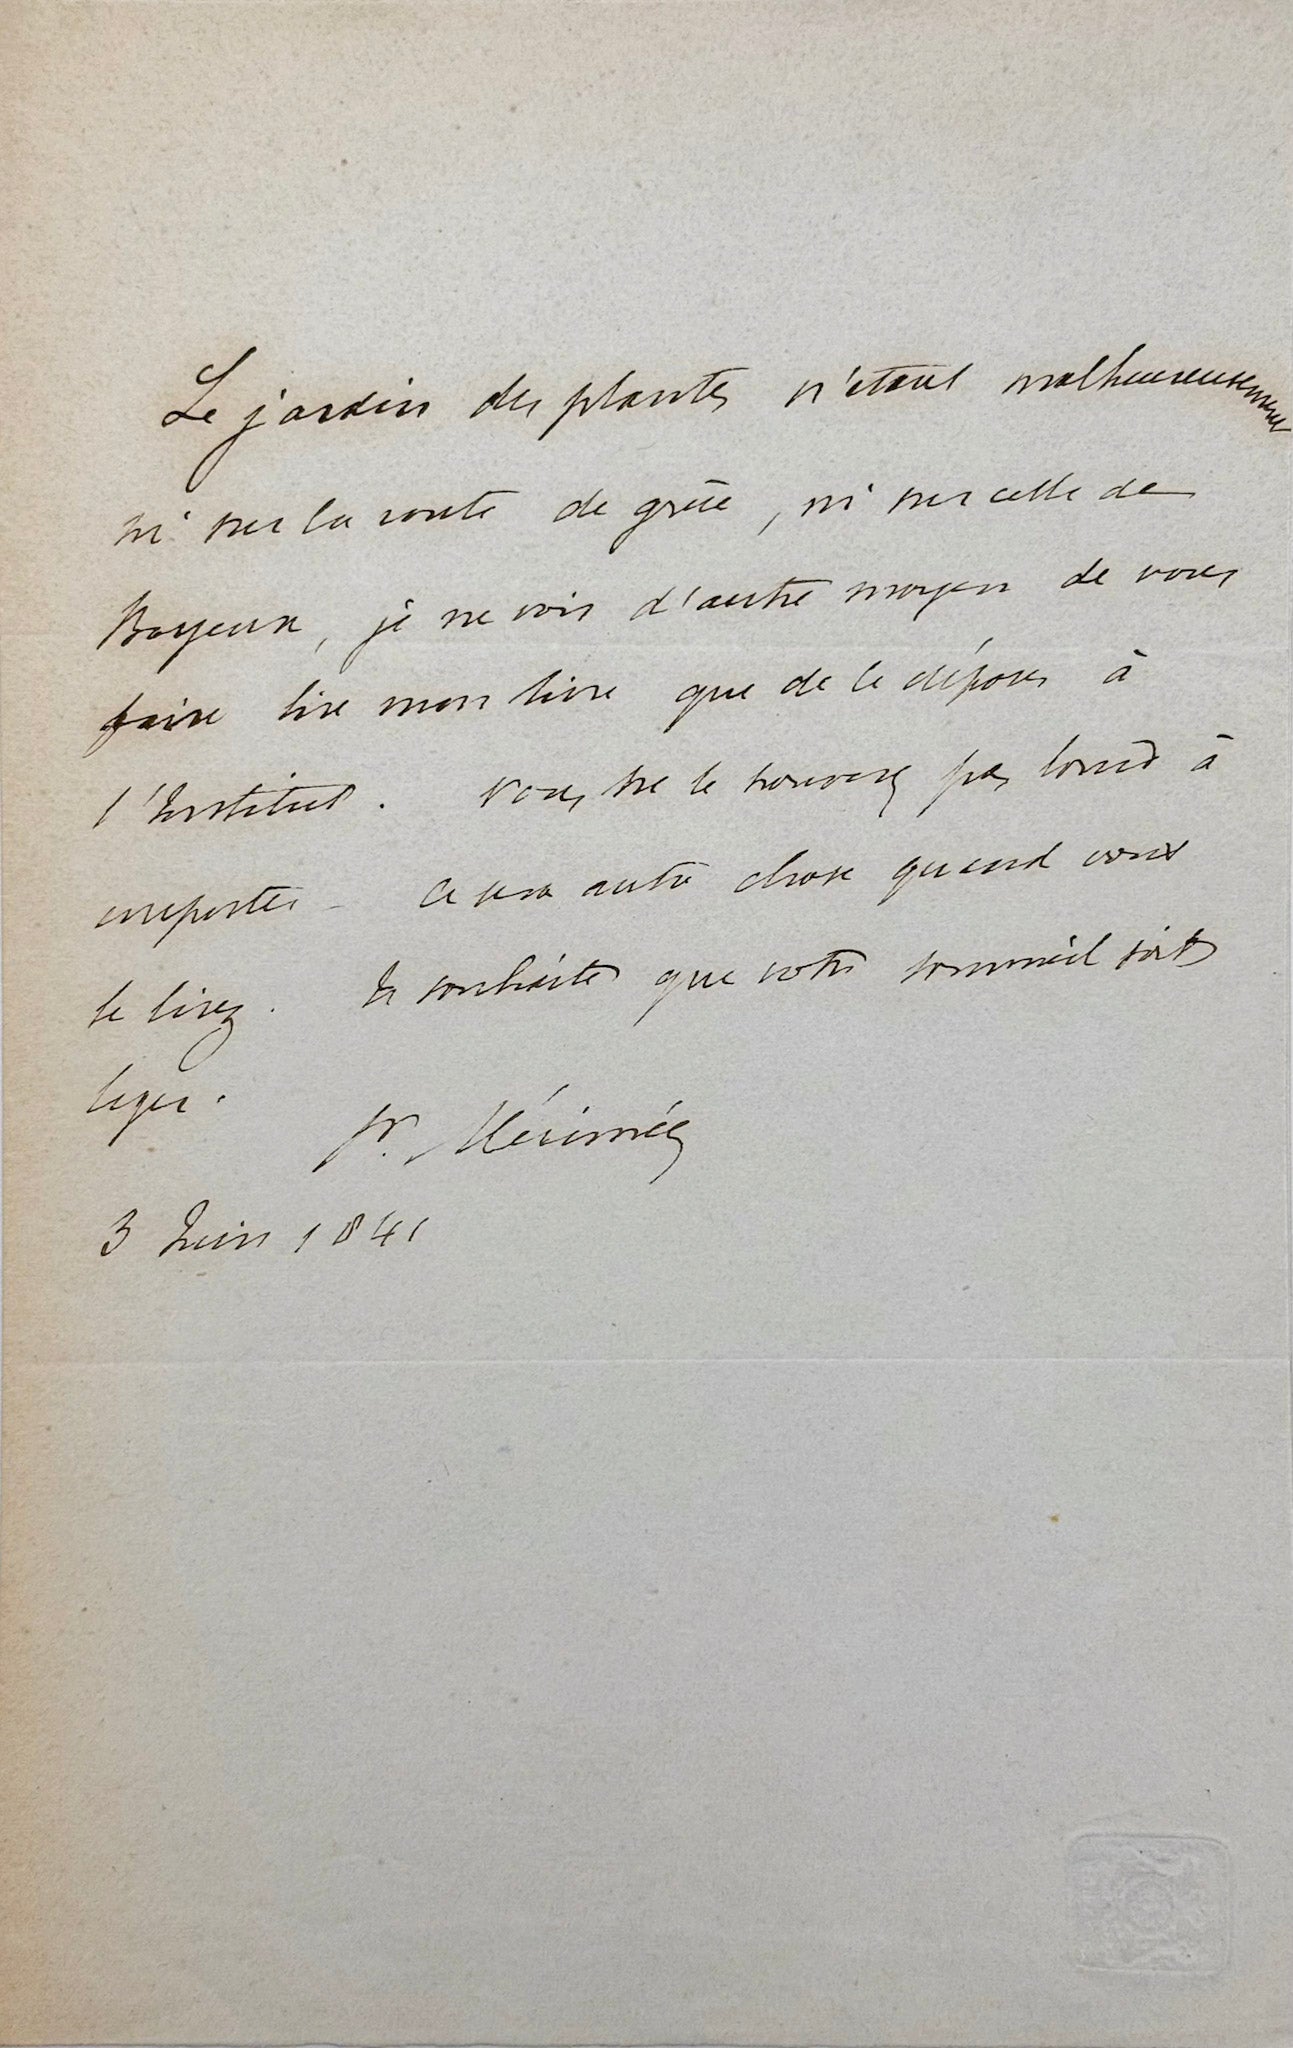 Le jardin des plantes n'étant malheureusement
ni sur la route de grèce, ni sur celle de
Bayeux, je ne vois d'autre moyen de vous
faire lire mon livre que de le déposer à
l'Institut. Vous ne le trouverez pas lourd à
emporter – Ce sera autre chose quand vous
le lirez. Je souhaite que votre sommeil soit
leger.
Pr. Mérimée
3 Juin 1841